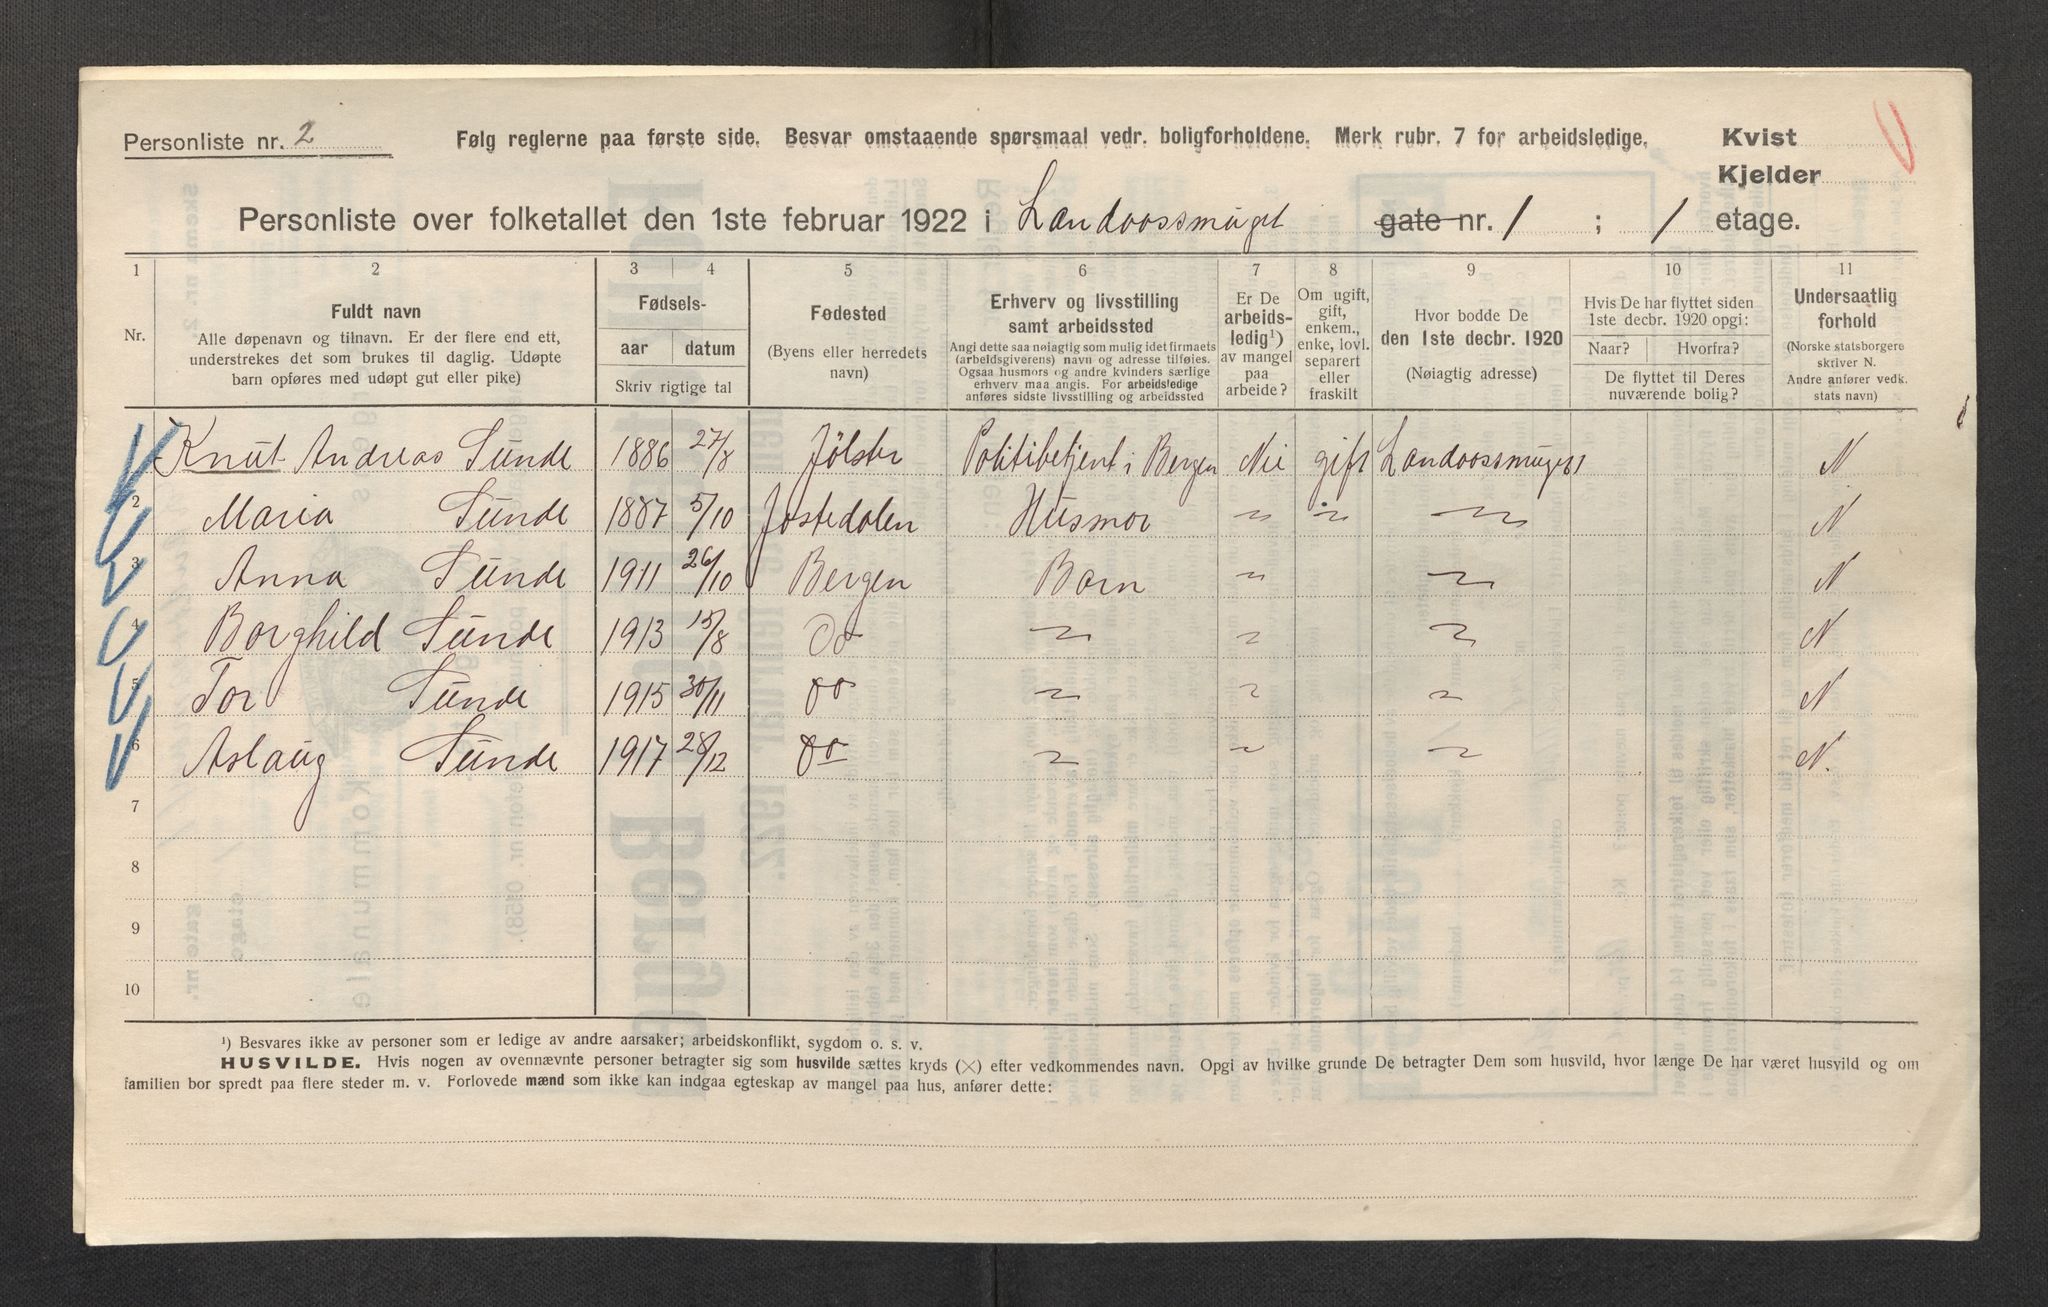 Personliste nr. 2
Følg reglerne paa første side. Besvar omstaaende spørsmaal vedr. boligforholdene. Merk rubr. 7 for arbeidsledige.
Kvist
Kjelder
Personliste over folketallet den 1ste februar 1922 i Landoossmuget gate nr. 1 ; 1 etage.
1 2 3 4 5 6 7 8 9 10 11
Nr.
Fuldt navn
Alle døpenavn og tilnavn. Er der flere end ett,
understrekes det som brukes til daglig. Udøpte
barn opføres med udøpt gut eller pike)
Fødsels-
aar datum
Skriv rigtige tal
Fødested
(Byens eller herredets
navn)
Erhverv og livsstilling
samt arbeidssted
Angi dette saa nøiagtig som mulig idet firmaets
(arbeidsgiverens) navn og adresse tilføies.
Ogsaa husmors og andre kvinders særlige
erhverv maa angis. For arbeidsledige
anføres sidste livsstilling og arbeidssted
Er De
arbeids-
ledig¹)
av mangel
paa
arbeide?
Om ugift,
gift,
enkem.,
enke, lovl.
separert
eller
fraskilt
Hvor bodde De
den 1ste decbr. 1920
(Nøiagtig adresse)
Hvis De har flyttet siden
1ste decbr. 1920 opgi:
Naar? Hvorfra?
De flyttet til Deres
nuværende bolig?
Undersaatlig
forhold
(Norske statsborgere
skriver N.
Andre anfører vedk.
stats navn)
Knut Andreas Sunde 1886 27/8 Jølster Politibetjent i Bergen Nei gift Landoossmuget 1 N
2 Maria Sunde 1887 5/10 Jostedalen Husmor " " " N
3 Anna Sunde 1911 26/10 Bergen Barn " " N
4 Borghild Sunde 1913 15/8 Do " " " N
5 Tor Sunde 1915 30/11 do " " " N
6 Aslaug Sunde 1917 28/12 do " " " N.
7
8
9
10
¹) Besvares ikke av personer som er ledige av andre aarsaker; arbeidskonflikt, sygdom o. s. v.
HUSVILDE. Hvis nogen av ovennævnte personer betragter sig som husvilde sættes kryds (×) efter vedkommendes navn. Opgi av hvilke grunde De betragter Dem som husvild, hvor længe De har været husvild og om
familien bor spredt paa flere steder m. v. Forlovede mænd som ikke kan indgaa egteskap av mangel paa hus, anfører dette: